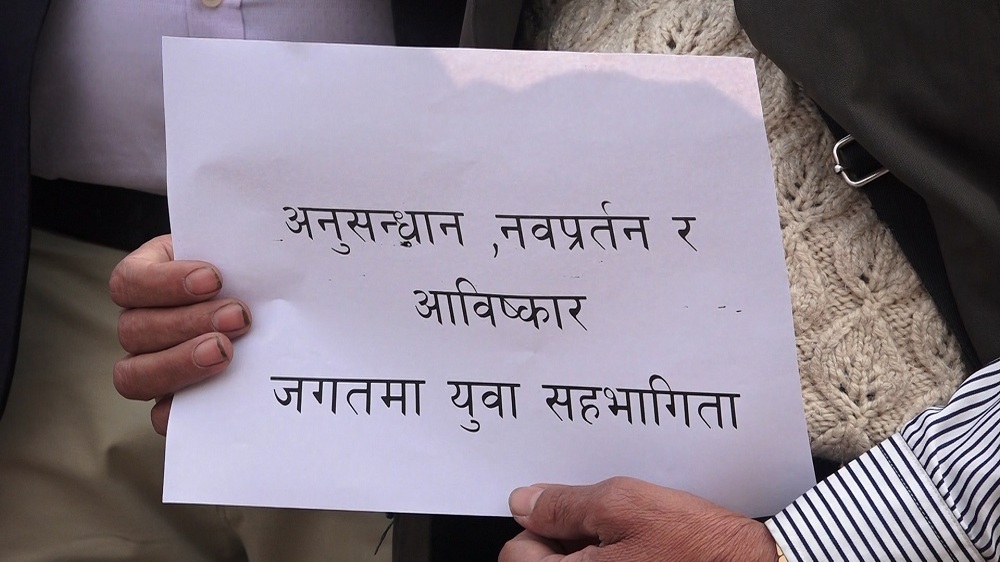 अनुसन्धान ,नवप्रर्तन र
आविष्कार
जगतमा युवा सहभागिता